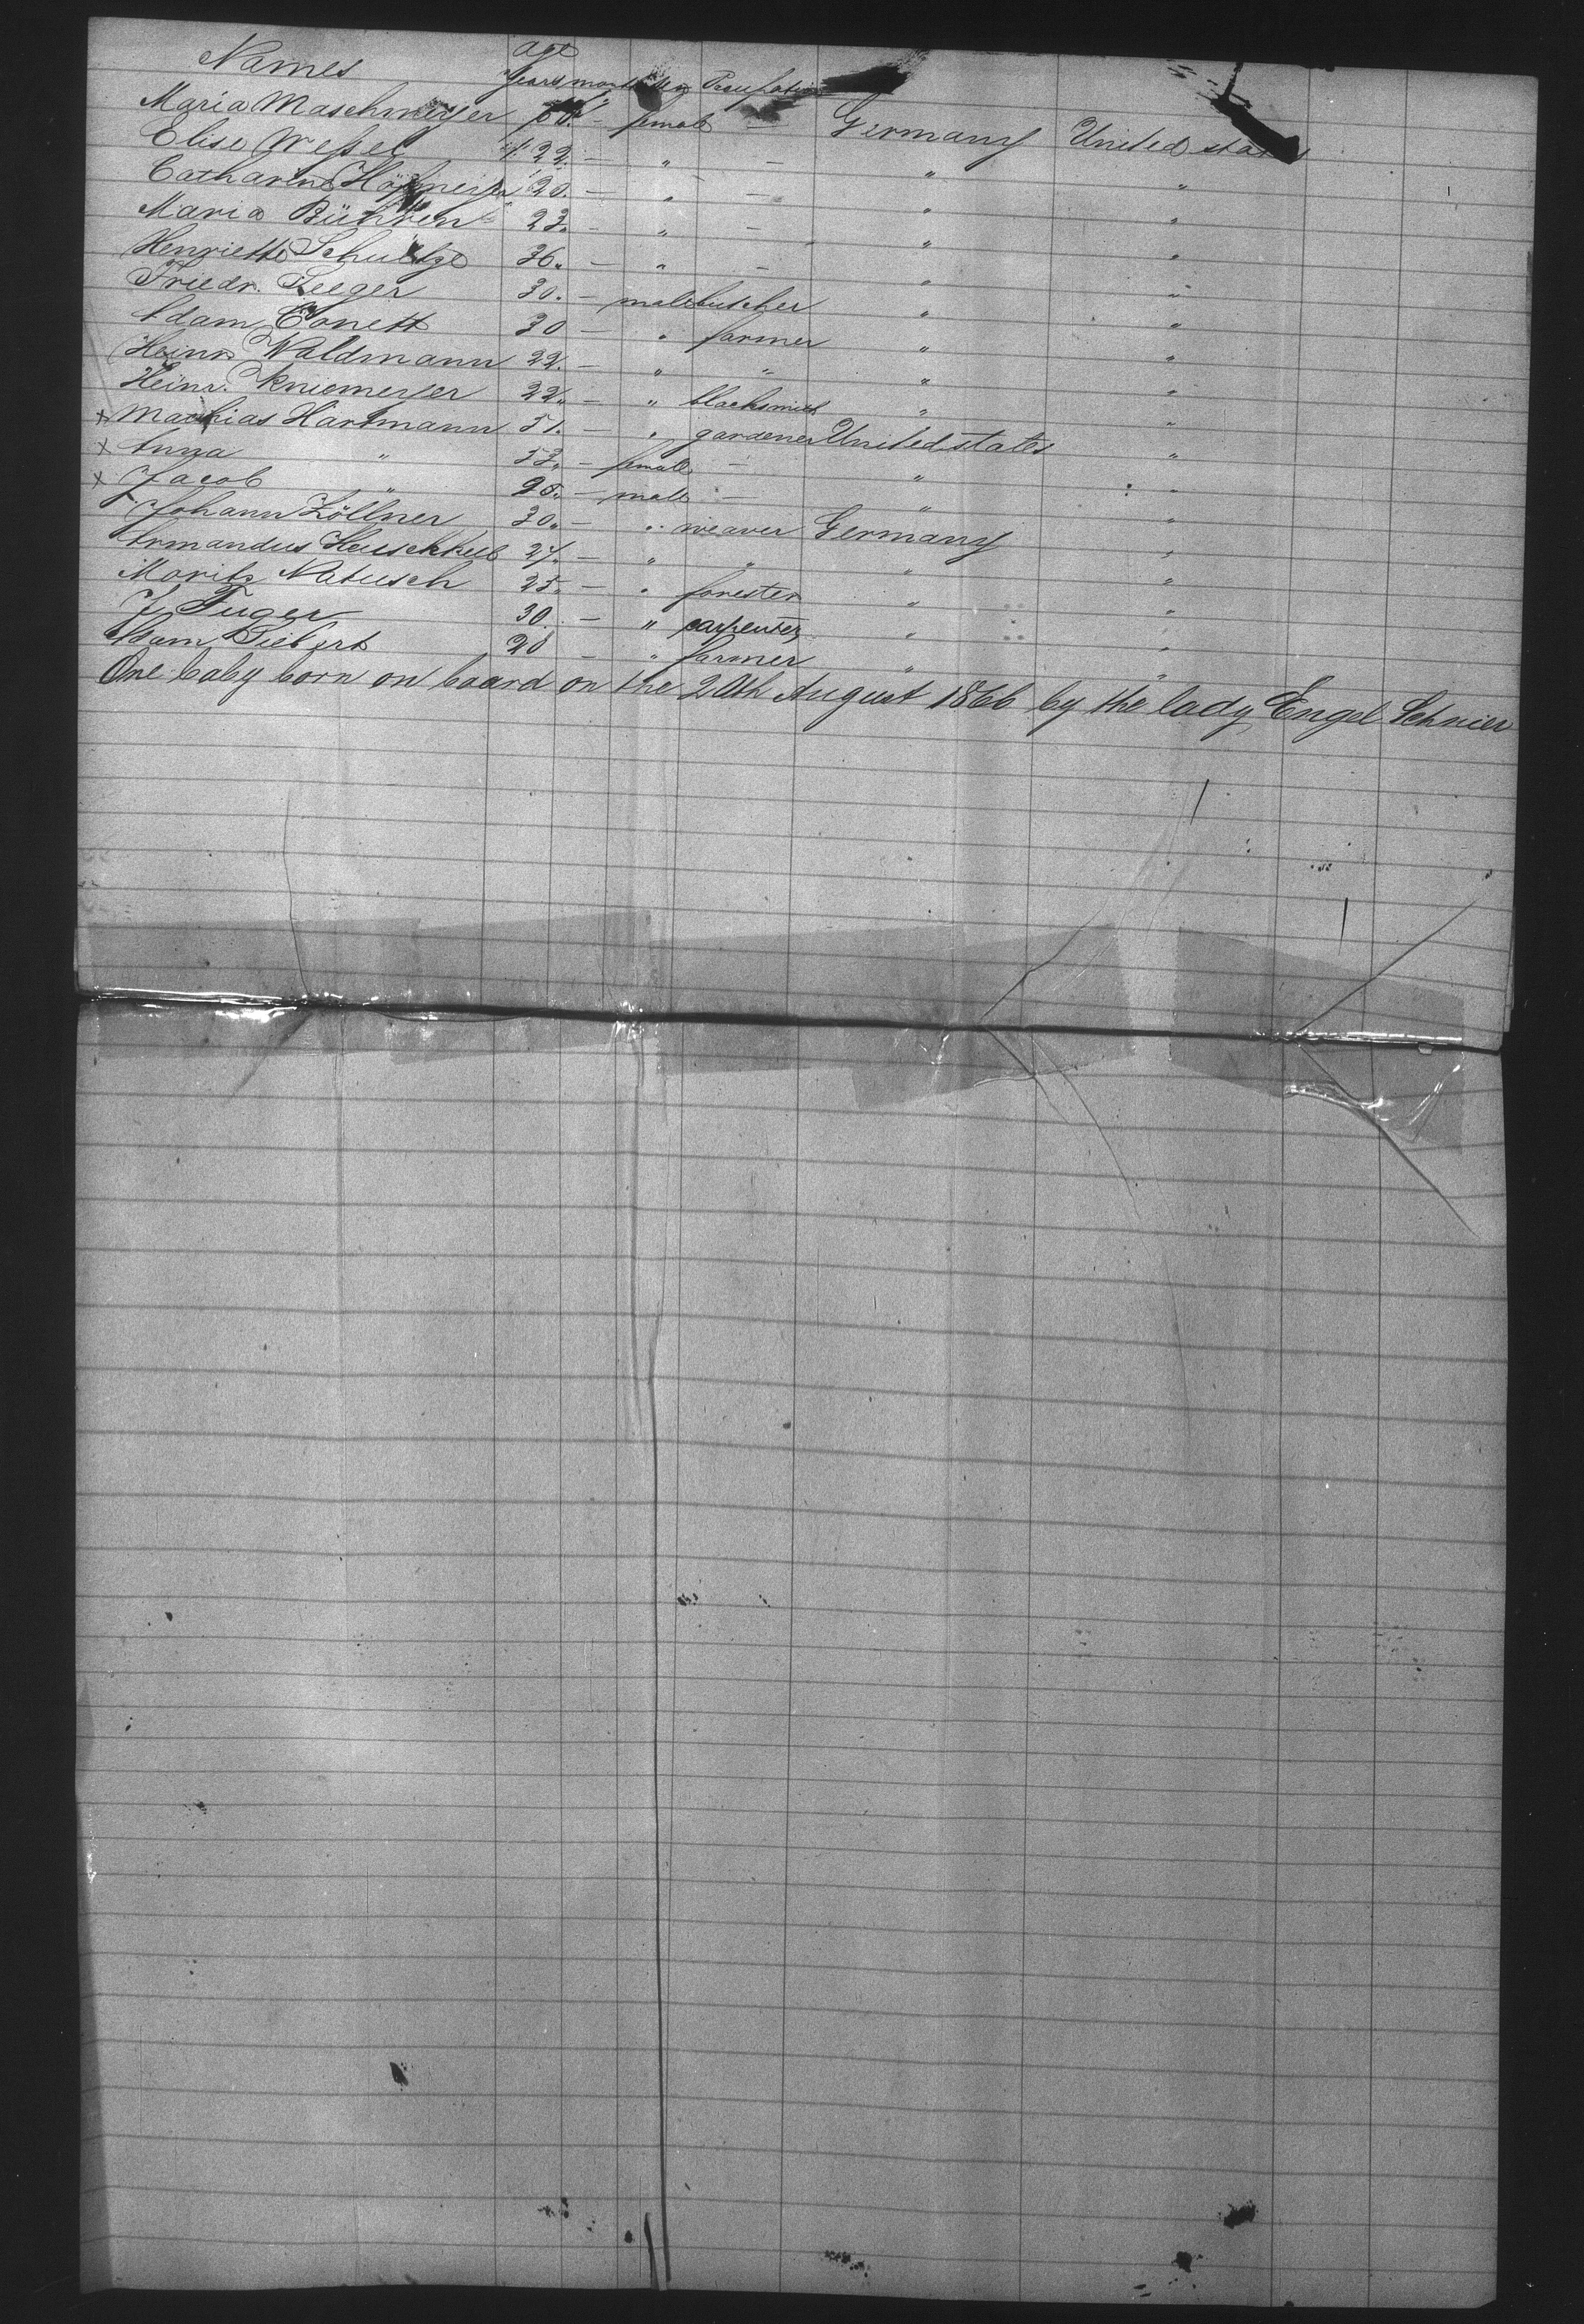 Names age
Years months Sex Occupation
Maria Maschmeyer 60. - female - Germany United states
Elise Weßel 22. - " - " "
Catharine 20. - " - " "
Maria Bühren 23. - " - " "
Henriette Schultze 36. - " - " "
Friedr. Seeger 30. - male butcher " "
Adam Conett 30 - " farmer " "
Heinr. Waldmann 22. - " " " "
Heinr. Kniemeyer 22. - " blacksmith " "
x Mathias Hartmann 51. - " gardener United states "
x Anna " 53. - female - " "
x Jacob " - male - " "
Johann Zöllner 30. - " weaver Germany "
Armandus 27. - " " " "
Moritz Natusch 25. - " forester " "
J. Tuger 30. - " carpenter " "
Adam Siebert 20 - " farmer " "
One baby born on board on the 20th August 1866 by the lady Engel Schnier